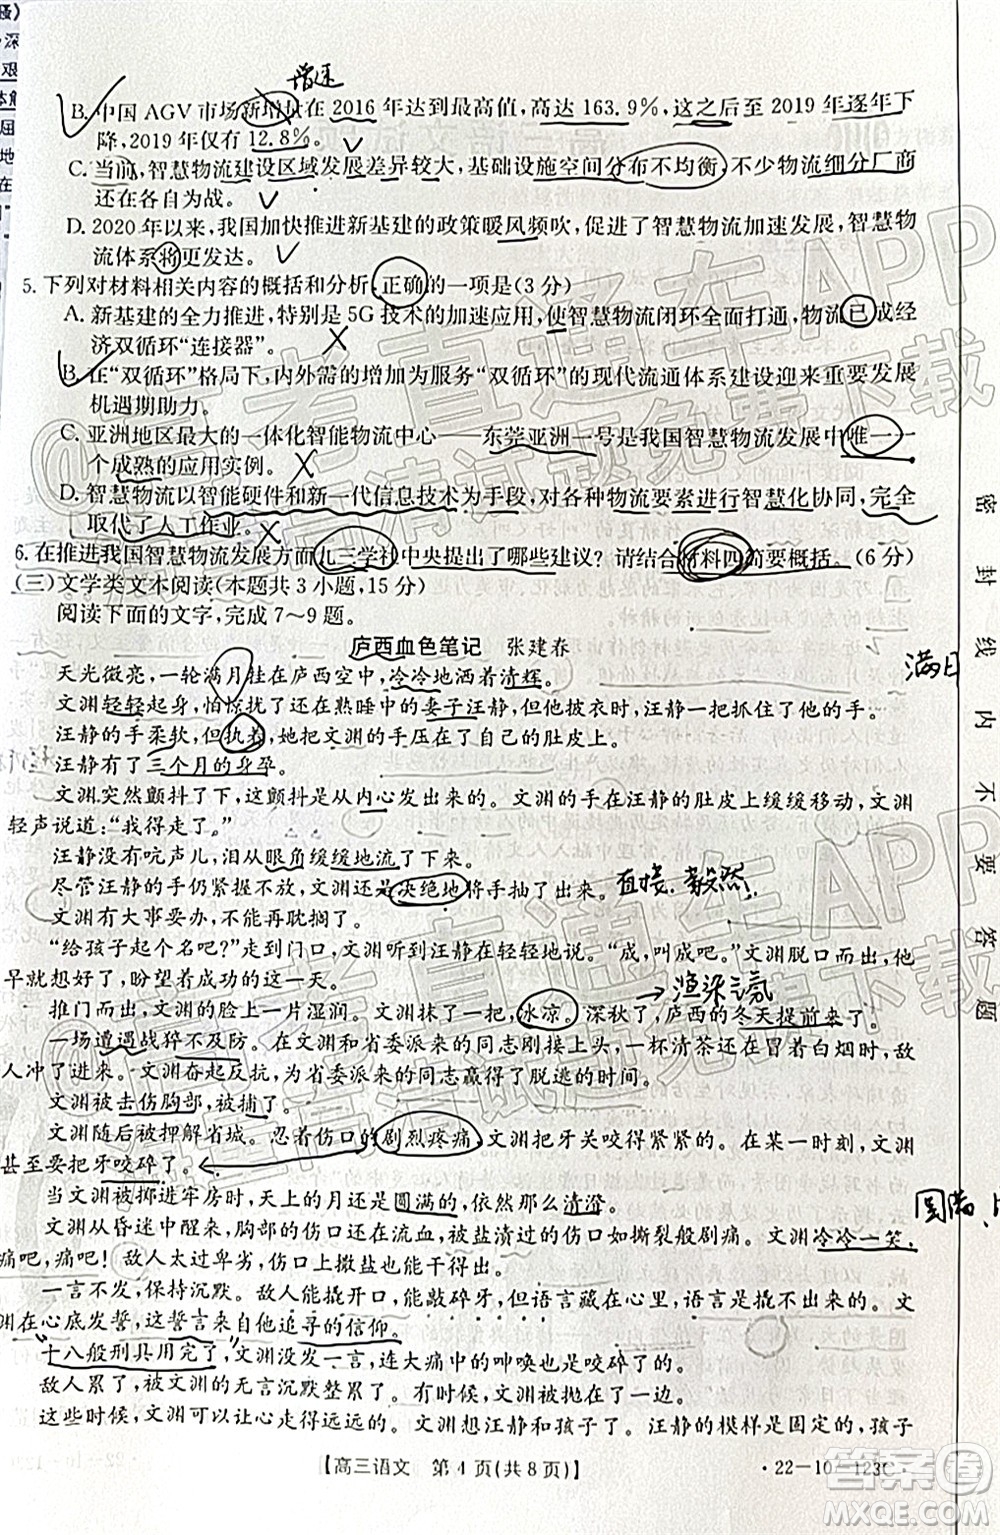 增速
B. 中国 AGV 市场新增量在 2016 年达到最高值，高达 163.9%，这之后至 2019 年逐年下
降，2019 年仅有 12.8%。
C. 当前，智慧物流建设区域发展差异较大，基础设施空间分布不均衡，不少物流细分厂商
还在各自为战。
D. 2020 年以来，我国加快推进新基建的政策暖风频吹，促使智慧物流加速发展，智慧物
流体系将更发达。
5. 下列对材料相关内容的概括和分析，正确的一项是(3 分)
A. 新基建的全力推进，特别是 5G 技术的加速应用，使智慧物流闭环全面打通，物流已成经
济双循环“连接器”。
B. 在“双循环”格局下，内外需的增加为服务“双循环”的现代流通体系建设迎来新的发展
机遇期助力。
C. 亚洲地区最大的一体化智能物流中心——东莞亚洲一号是我国智慧物流发展中唯一一
个成熟的应用实例。
D. 智慧物流以智能硬件和新一代信息技术为手段，对各种物流要素进行智慧化协同，完全
取代了人工作业。
6. 在推进我国智慧物流发展方面九三学社中央提出了哪些建议？请结合材料四简要概括。(6 分)
(三)文学类文本阅读(本题共 3 小题，15 分)
阅读下面的文字，完成 7～9 题。
庐西血色笔记 张建春
天光微亮，一轮满月挂在庐西空中，冷冷地洒着清辉。
满月
文渊轻轻起身，怕惊扰了在熟睡中的妻子汪静，但他披衣时，汪静一把抓住了他的手。
汪静的手柔软，但执着，她把文渊的手压在了自己的肚皮上。
汪静有了三个月的身孕。
文渊突然颤抖了下，这颤抖是从内心发出来的。文渊的手在汪静的肚皮上缓缓移动，文渊
轻声说道：“我得走了。”
汪静没有吭声儿，泪从眼角缓缓地流了下来。
尽管汪静的手仍紧握不放，文渊还是决绝地将手抽了出来。
直接、毅然
文渊有大事要办，不能再耽搁了。
“给孩子起个名吧？”走到门口，文渊听到汪静在轻轻地说。“成，叫成吧。”文渊脱口而出，
早就想好了，盼望着成功的这一天。
→渲染氛
推门而出，文渊的脸上一片湿润。文渊摸了一把，冰凉。深秋了，庐西的冬天提前来了。
一场遭遇战猝不及防。文渊和省委派来的同志刚接上头，一杯清茶还在冒着白烟时，敌
人冲了进来。文渊奋起反抗，为省委派来的同志赢得了脱逃的时间。
文渊被击伤胸部，被捕了。
文渊随后被押解省城。忍着伤口的剧烈疼痛，文渊把牙关咬得紧紧的。在某一时刻，文渊
甚至要把牙咬碎了。
当文渊被掷进牢房时，天上的月还是圆满的，依然那么清澄。
圆满、
文渊从昏迷中醒来，胸部的伤口还在流血，被盐渍过的伤口如撕裂般剧痛。文渊冷冷一笑，
痛吧，痛吧！敌人太过卑劣，伤口上撒盐也能干得出。
一言不发，保持沉默。敌人可以撬开嘴，能敲碎牙，但语言藏在心里，语言是撬不出来的。文
渊在心底发誓，这誓言来自他追寻的信仰。
十八般刑具用完了，文渊没发一言，连大痛中的呻唤也咬碎了。
敌人累了，被文渊的无言沉默整累了。文渊被抛在了一边。
这些时候，文渊可以让心走得远远的。文渊想汪静和孩子了。汪静的模样是固定的，孩子
【高三语文 第 4 页(共 8 页)】
·22-10-123C·
密封线内不要答题